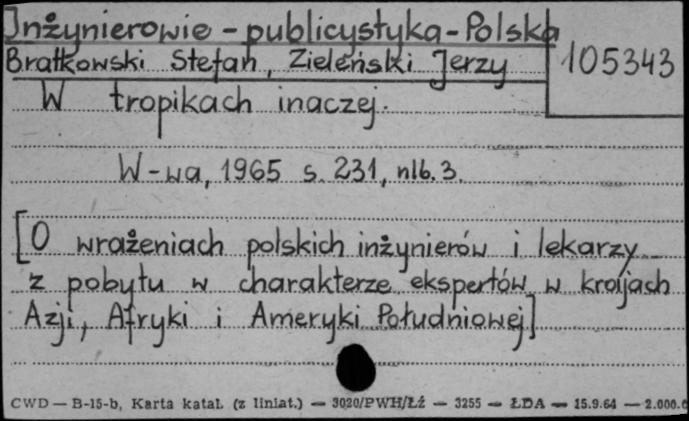 Inżynierowie - publicystyka - Polska
Bratkowski Stefan, Zieleński Jerzy
105343
W tropikach inaczej.
W-wa, 1965 s. 231, nlb. 3.
[O wrażeniach polskich inżynierów i lekarzy
z pobytu w charakterze ekspertów w krajach
Azji, Afryki i Ameryki Południowej]
CWD — B-15-b, Karta katal. (z liniat.) — 3020/PWH/Łź — 3255 — ŁDA — 15.9.64 — 2.000.0